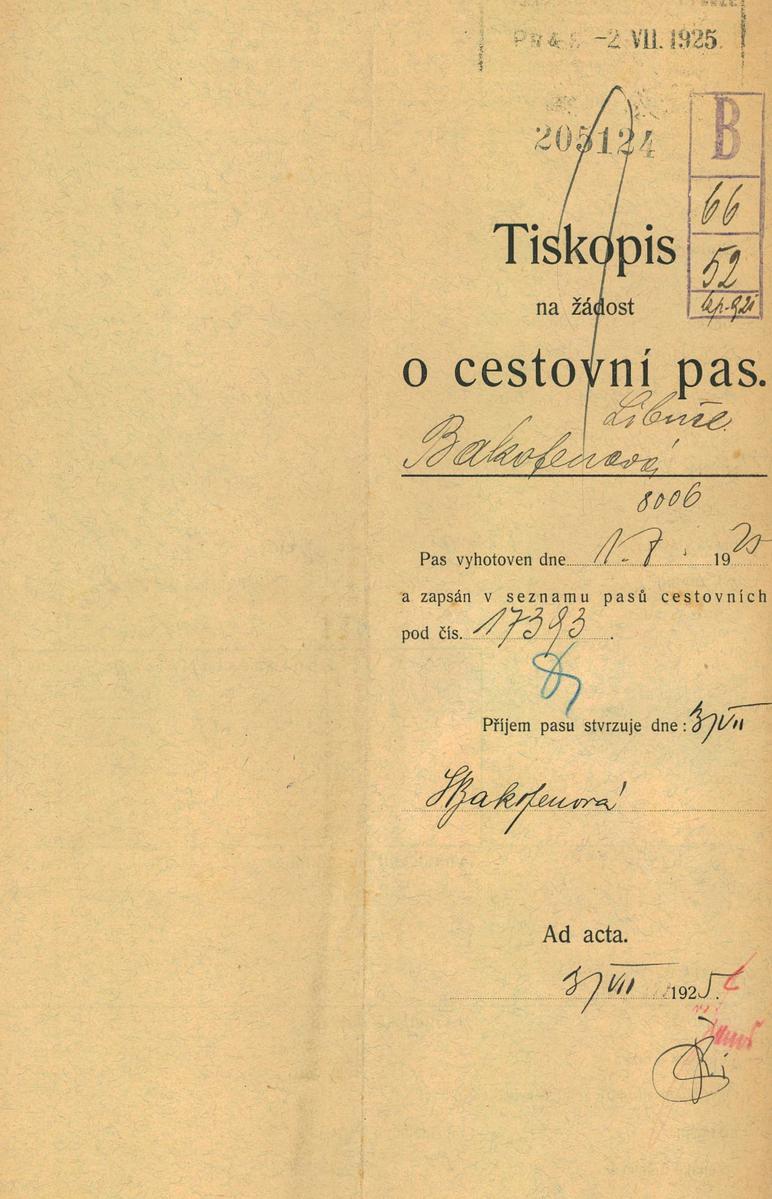 -2. VII. 1925
205124
B
66
52
Tiskopis
na žádost
o cestovní pas.
Libuše
Bakofenová
8006
Pas vyhotoven dne 1.7. 1925
a zapsán v seznamu pasů cestovních
pod čís. 17393.
Příjem pasu stvrzuje dne: 3/VII
Bakofenová
Ad acta.
3/VII 1925.